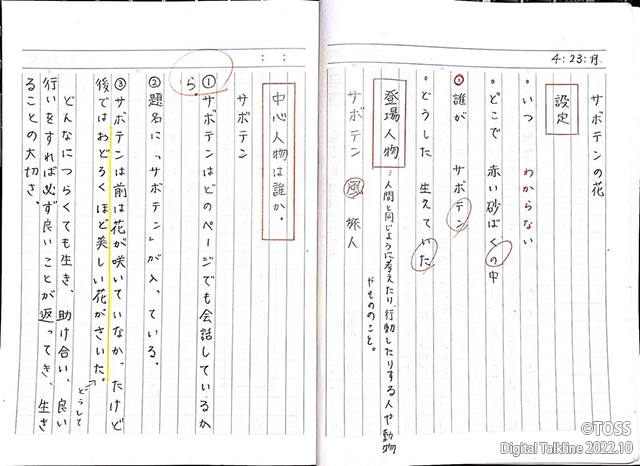 4:23:月
サボテンの花
設定
・いつ わからない
・どこで 赤い砂ばくの中
・誰が サボテン
・どうした 生えていた
登場人物:人間と同じように考えたり、行動したりする人や動物
やもののこと。
サボテン 風 旅人
: :
中心人物は誰か。
サボテン
①サボテンはどのページでも会話しているか
ら。
②題名に「サボテン」が入っている。
③サボテンは前は花が咲いていなかったけど
後ではおどろくほど美しい花がさいた。
どうして
どんなにつらくても生き、助け合い、良い
行いをすれば必ず良いことが返ってき、生き
ることの大切さ。
©TOSS
Digital Talkline 2022.10